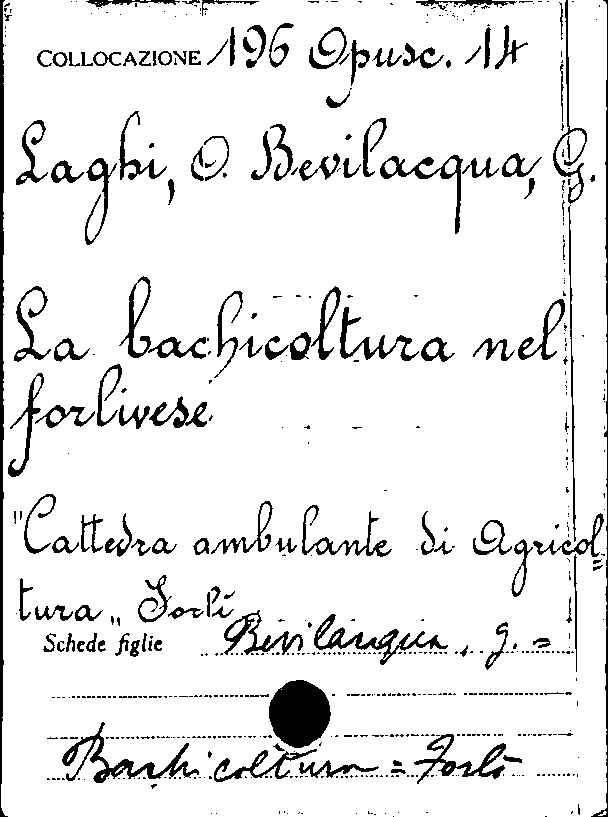 COLLOCAZIONE 196 Opusc. 14
Laghi, O. Bevilacqua, G.
La bachicoltura nel
forlivese
"Cattedra ambulante di Agricol=
tura„ Forlì
Schede figlie Bevilacqua, G. =
Bachicoltura = Forlì